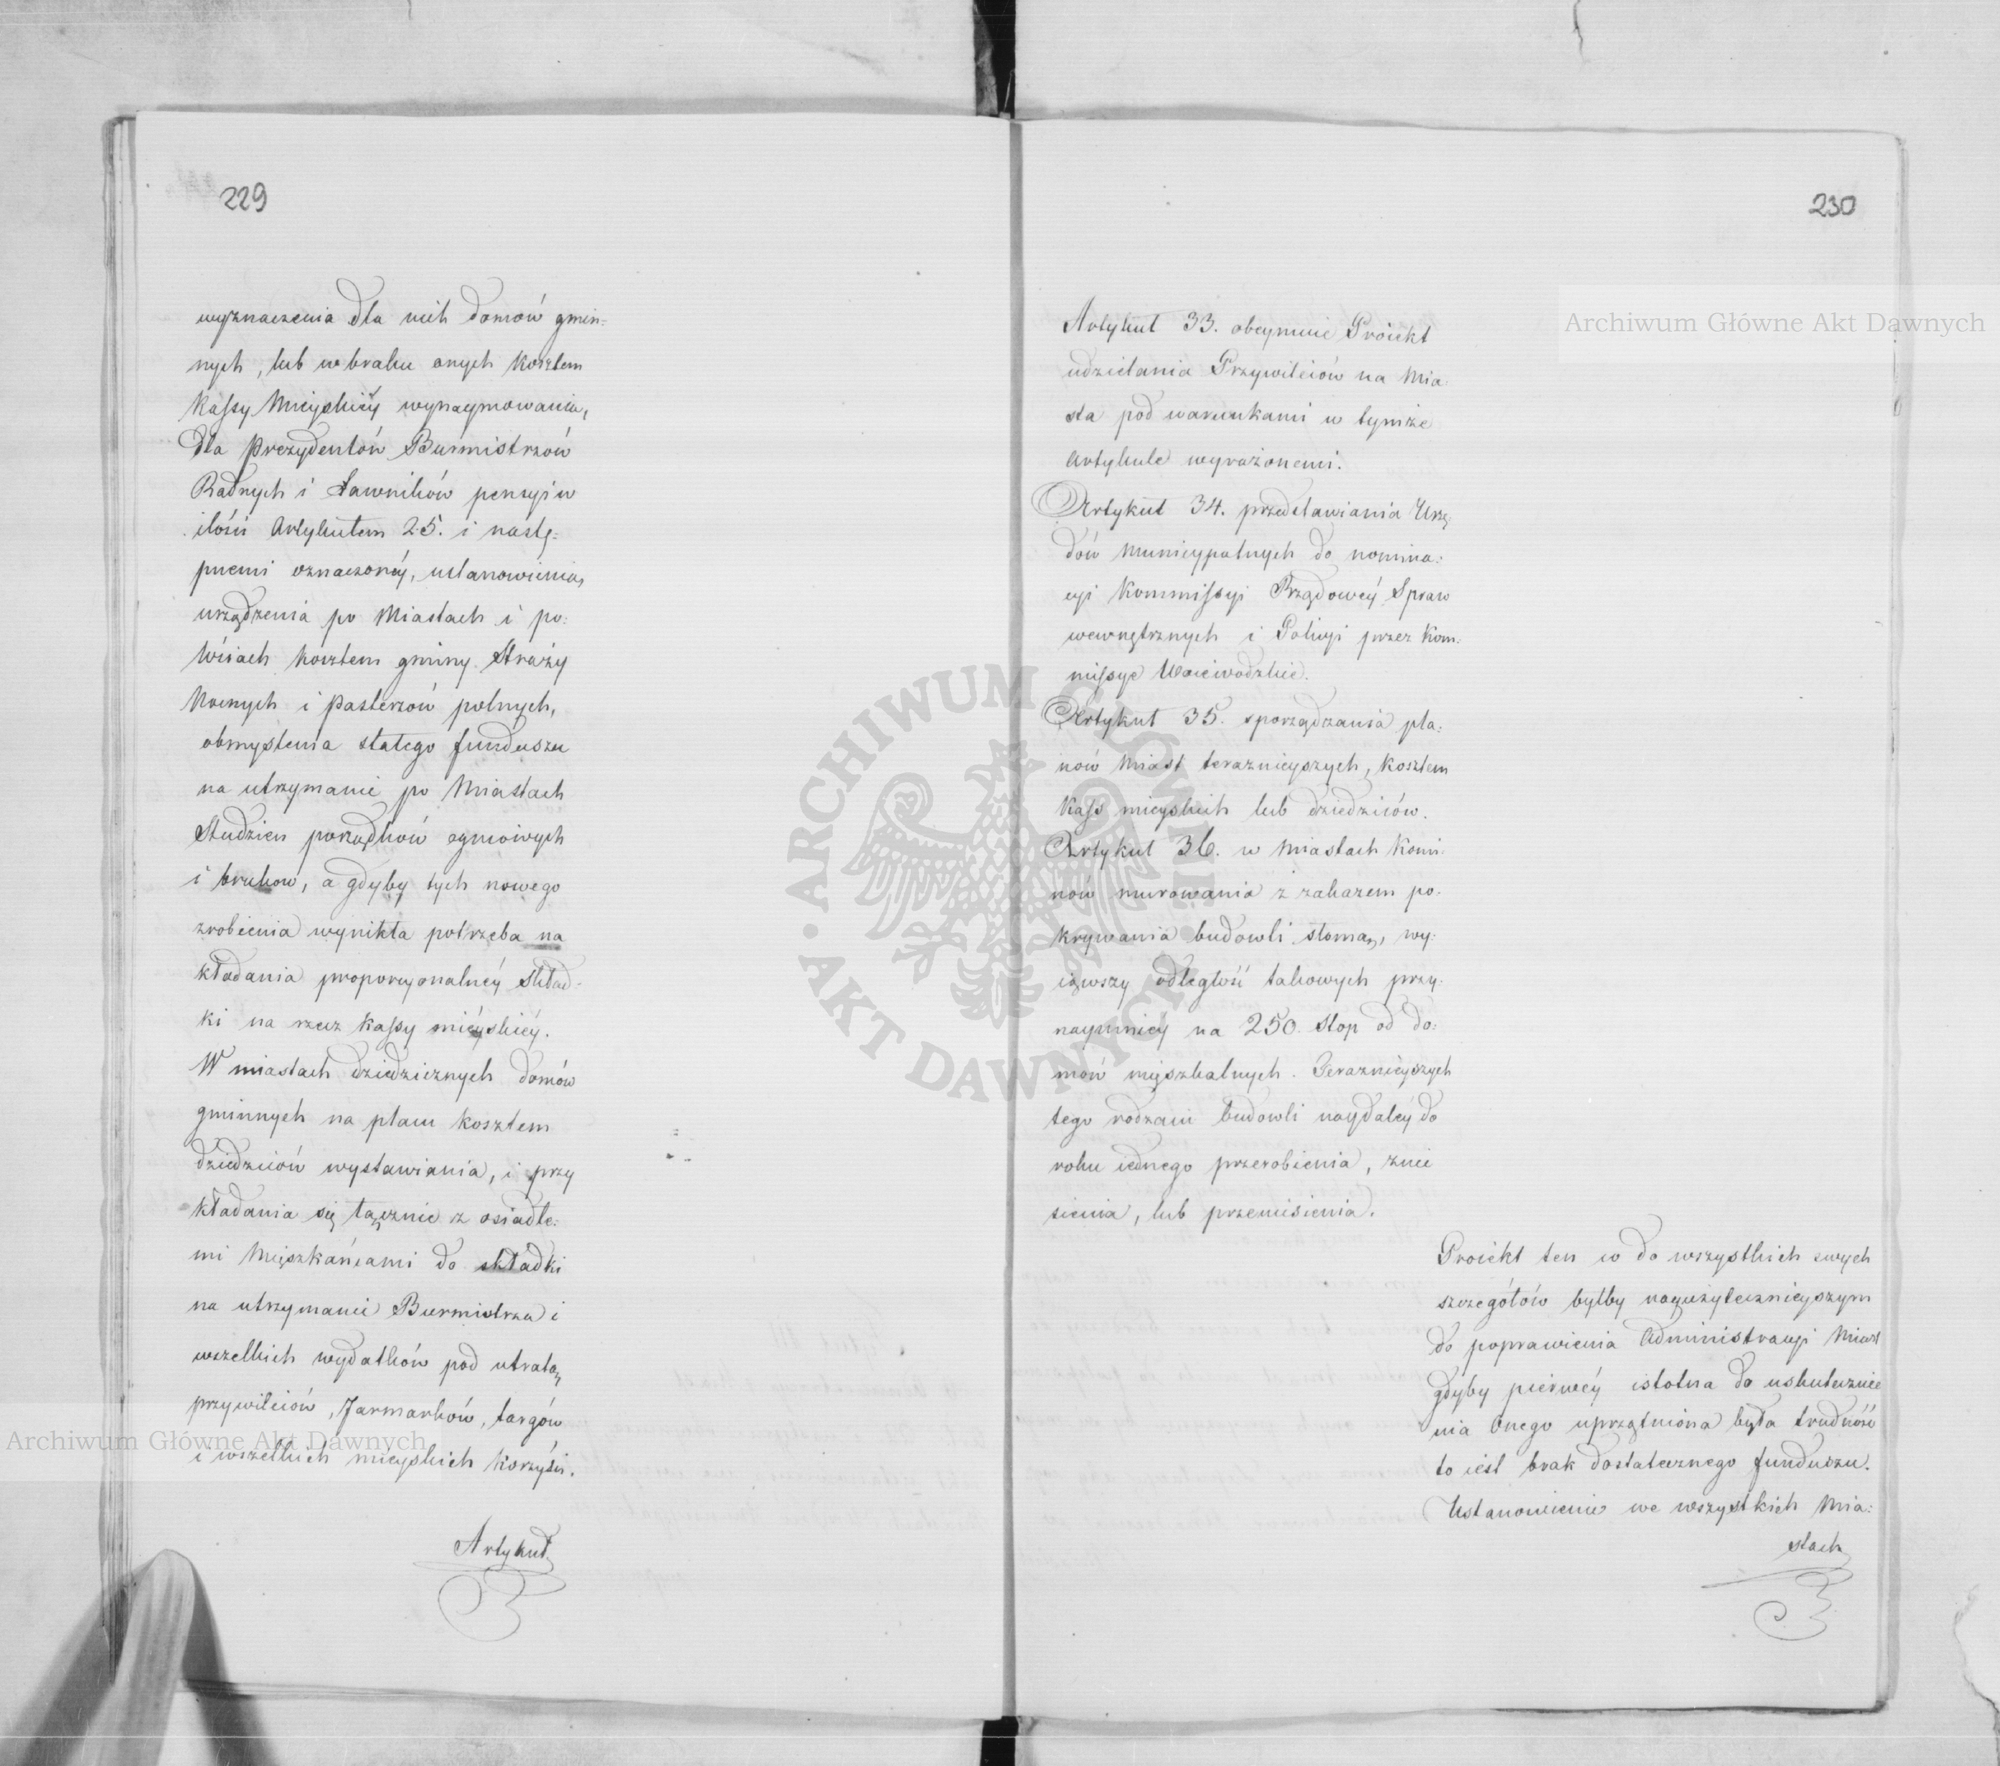 229
wyznaczenia dla nich domów gmin=
nych, lub w braku onych kosztem
Kassy Mieyskiéy wynaymowania,
dla Prezydentów Burmistrzów
Radnych i Ławników pensyi w
ilości Artykułem 25. i nastę=
pnemi oznaczonéy, ustanowienia,
urządzenia po Miastach i po
Wsiach kosztem gminy Straży
Nocnych i Pasterzów polnych,
obmyślenia stałego funduszu
na utrzymanie po Miastach
Studzien porządków ogniowych
i bruków, a gdyby tych nowego
zrobienia wynikła potrzeba na
kładania proporcyonalnéy skład=
ki na rzecz Kassy miéyskiéy.
W miastach dziedzicznych domów
gminnych na placu kosztem
dziedziców wystawiania, i przy
kładania się łącznie z osiadłe=
mi Mieszkańcami do składki
na utrzymanie Burmistrza i
wszelkich wydatków pod utratą
przywileiów, Jarmarków, targów
i wszelkich mieyskich korzyści.
Artykuł
230
Artykuł 33. obeymuie Proiekt
udzielania Przywileiów na Mia
sta pod warunkami w tymże
Artykule wyrażonemi.
Artykuł 34. przedstawiania Urzę=
dów Municypalnych do nomina=
cyi Kommissyi Rządowéy Spraw
wewnętrznych i Policyi przez Kom=
missye Woiewodzkie.
Artykuł 35. sporządzania pla=
nów Miast teraznieyszych, kosztem
Kass mieyskich lub dziedziców.
Artykuł 36. w Miastach Komi=
nów murowania z zakazem po=
krywania budowli słomą, wy=
iąwszy odległość takowych przy=
naymniéy na 250. stop od do=
mów mieszkalnych. Teraznieyszych
tego rodzaiu budowli naydaléy do
roku iednego przerobienia, znie
sienia, lub przeniesienia.
Proiekt ten co do wszystkich swych
szczegółów byłby nayużytecznieyszym
do poprawienia Administracyi Miast
gdyby piérwéy istotna do uskutecznie
nia Onego uprzątniona była trudność
to iest brak dostatecznego funduszu.
Ustanowienie we wszystkich Mia=
stach
Archiwum Główne Akt Dawnych
Archiwum Główne Akt Dawnych
ARCHIWUM GŁÓWNE AKT DAWNYCH